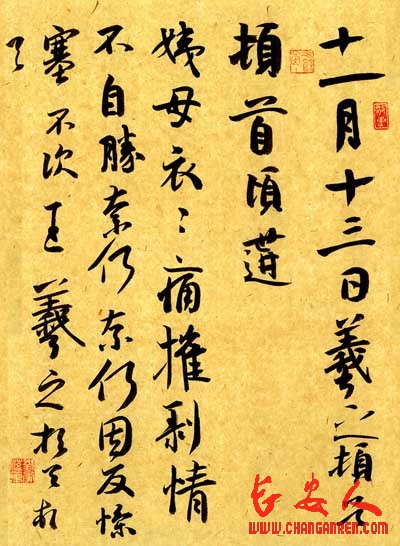 十一月十三日羲之頓首
頓首頃遘
姨母哀〻痛摧剝情
不自勝奈何奈何因反慘
塞不次王羲之頓首頓
首
长安人
WWW.CHANGANREN.COM